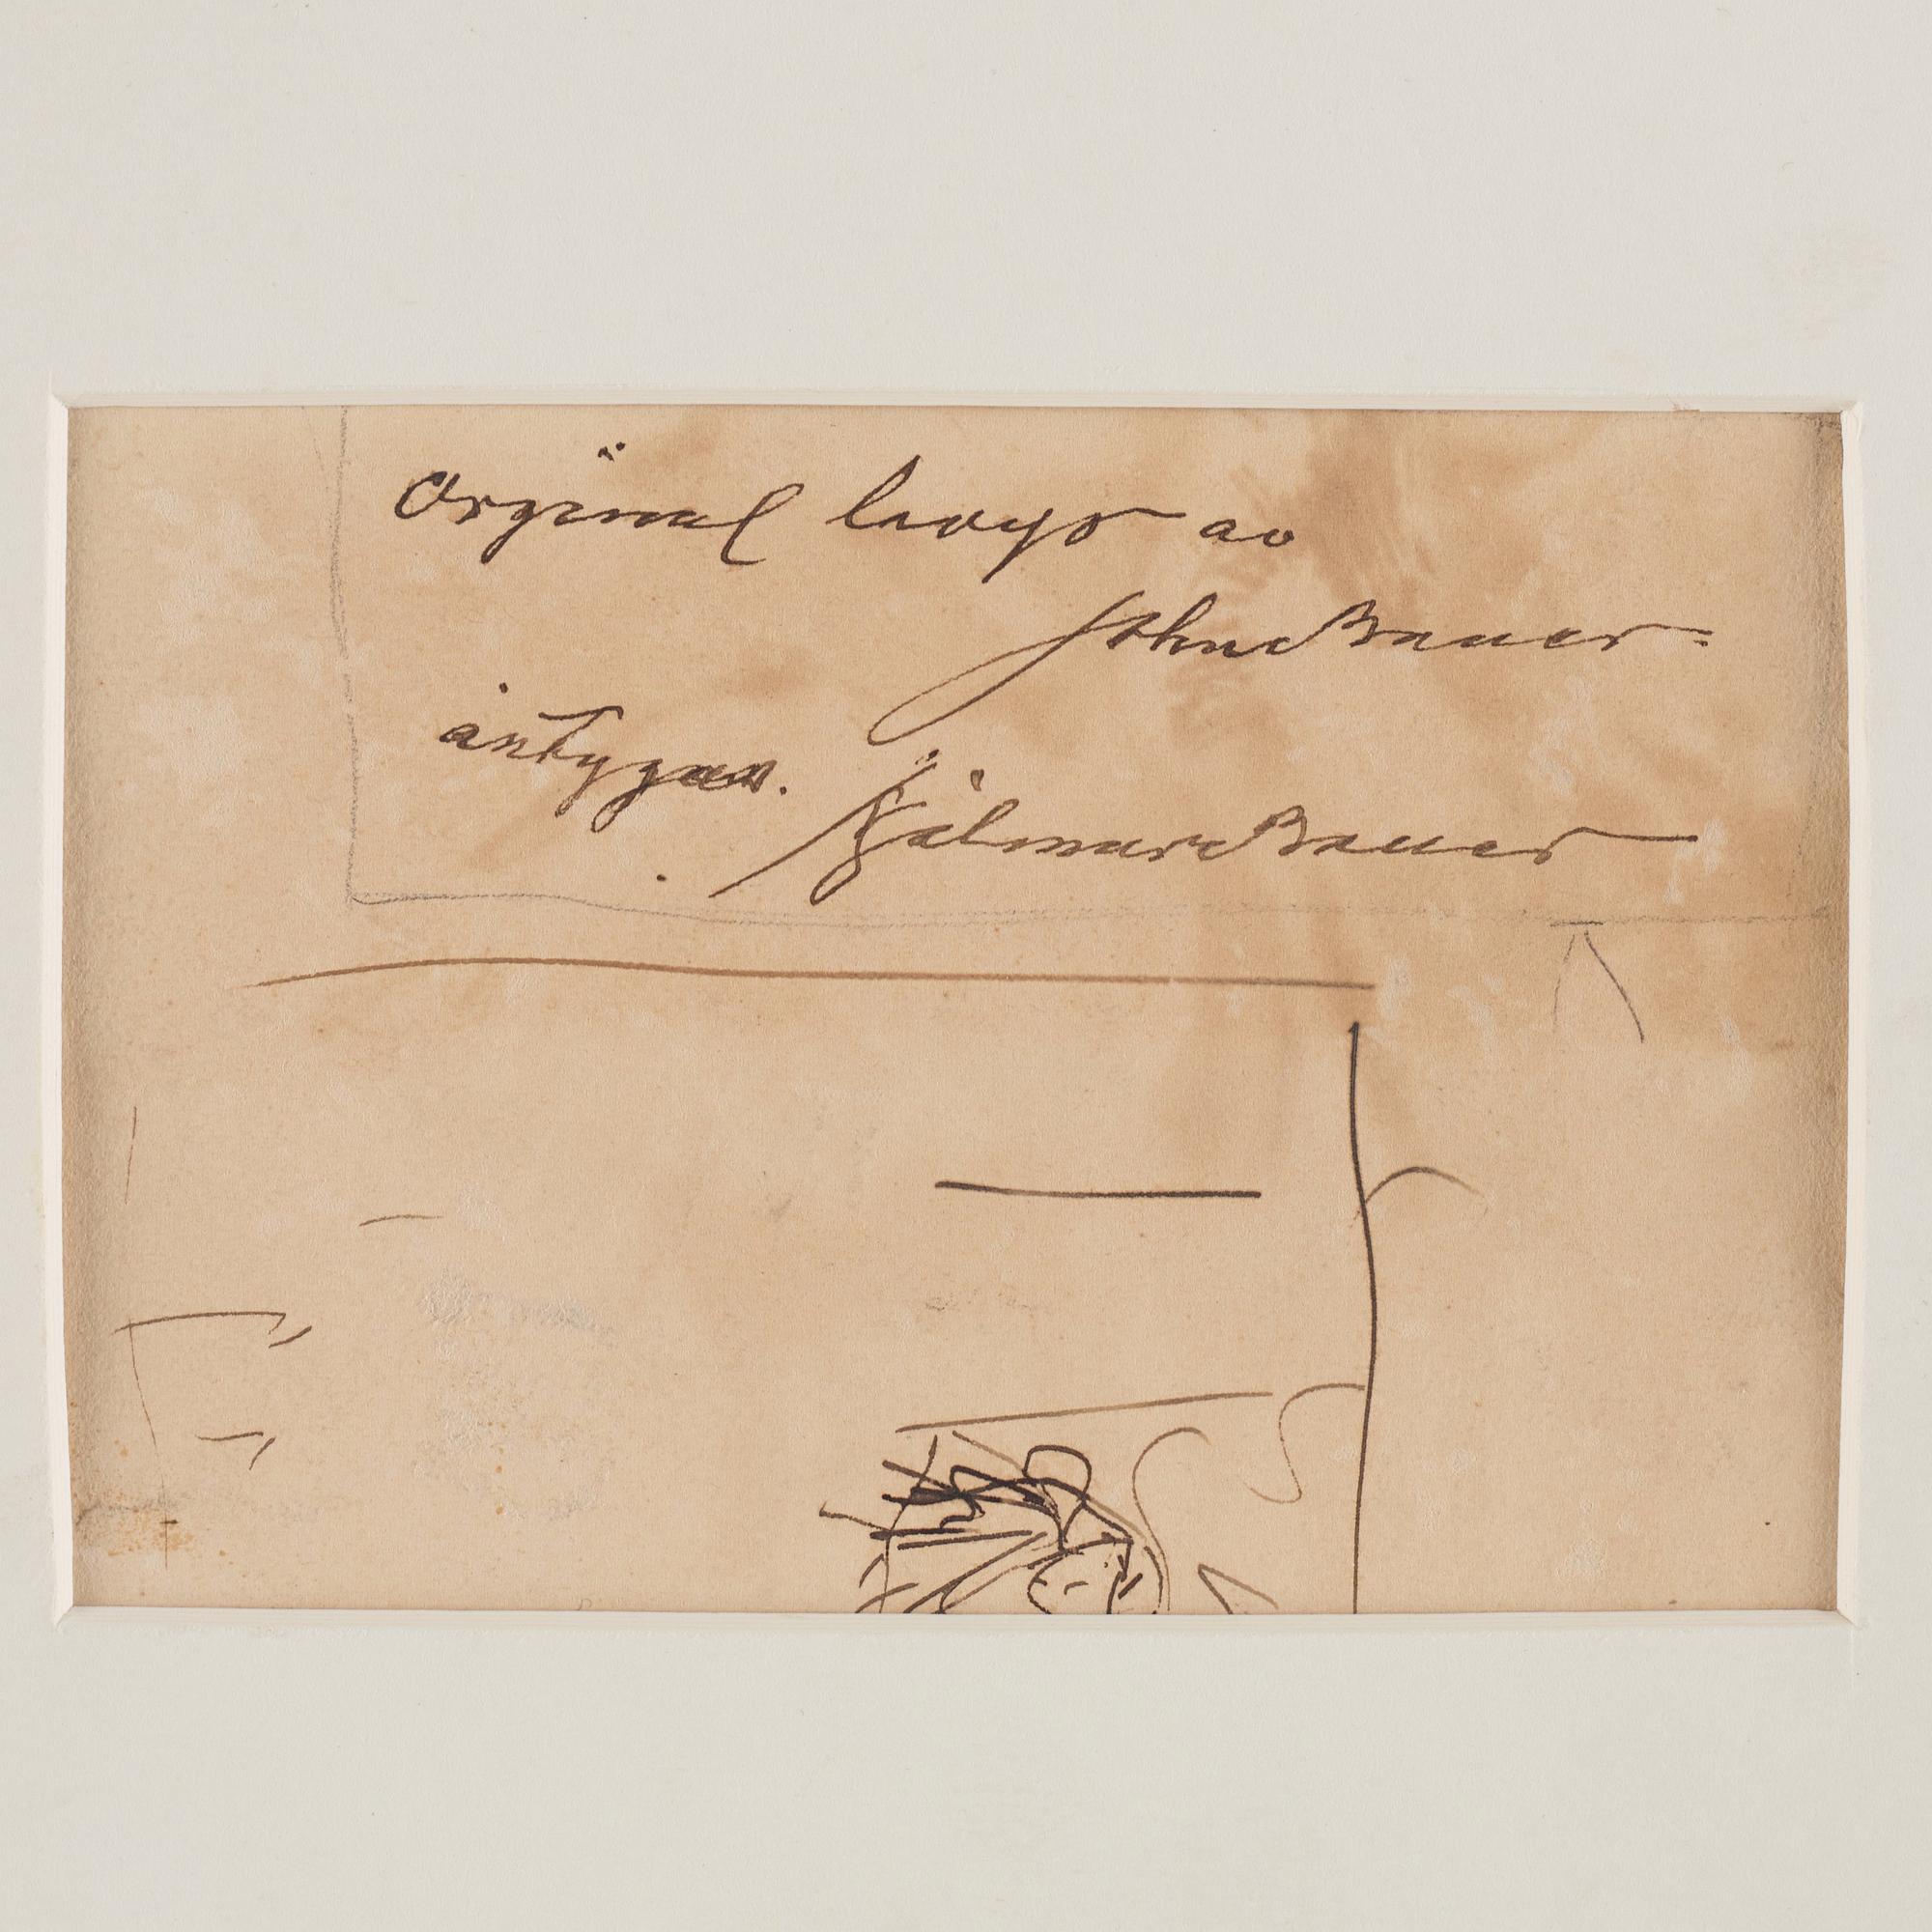 Orginal lavyr av
John Bauer
intygas.
Hjalmar Bauer